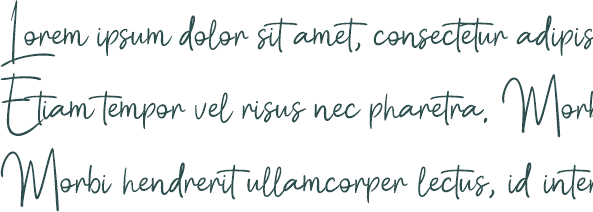 Lorem ipsum dolor sit amet, consectetur adipis
Etiam tempor vel risus nec pharetra. Morb
Morbi hendrerit ullamcorper lectus, id inter